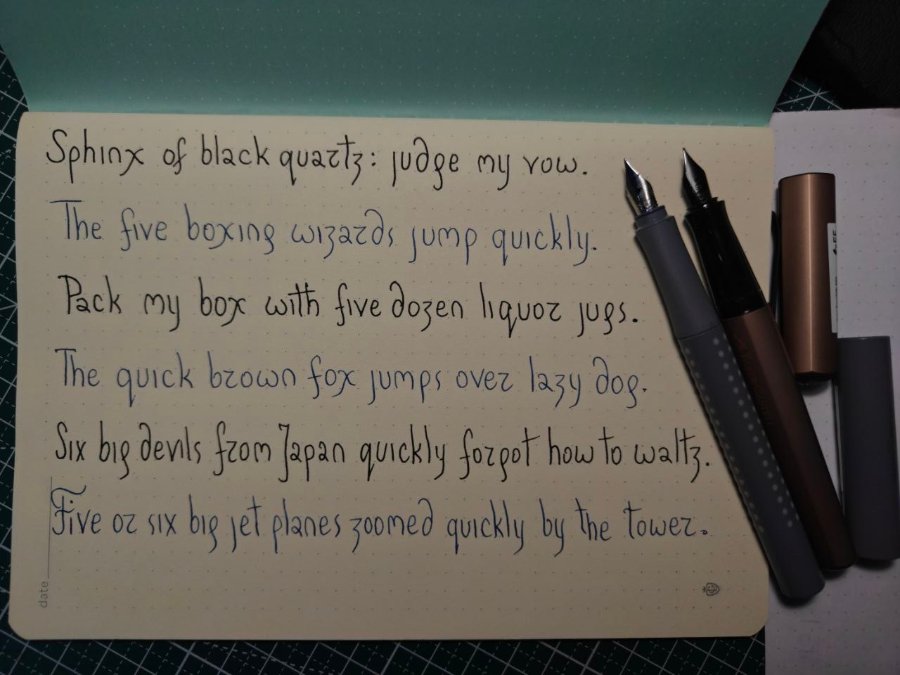 Sphinx of black quartz: judge my vow.
The five boxing wizards jump quickly.
Pack my box with five dozen liquor jugs.
The quick brown fox jumps over lazy dog.
Six big devils from Japan quickly forgot how to waltz.
Five or six big jet planes zoomed quickly by the tower.
date